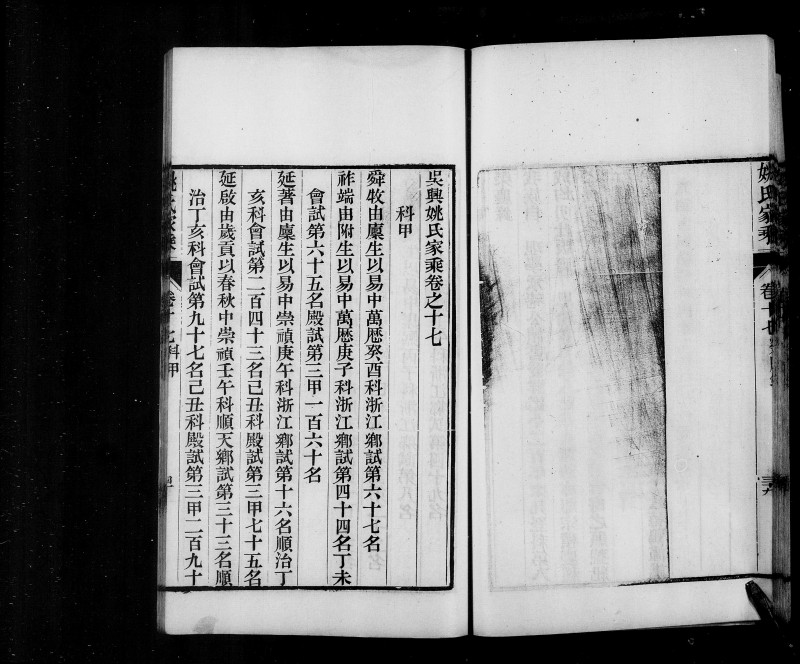 姚氏家乘
卷十七
吳興姚氏家乘卷之十七
科甲
舜牧由廩生以易中萬曆癸酉科浙江鄉試第六十七名
祚端由附生以易中萬曆庚子科浙江鄉試第四十四名丁未
會試第六十五名殿試第三甲一百六十名
延著由廩生以易中崇禎庚午科浙江鄉試第十六名順治丁
亥科會試第二百四十三名己丑科殿試第三甲七十五名
延啟由歲貢以春秋中崇禎壬午科順天鄉試第三十三名順
治丁亥科會試第九十七名己丑科殿試第三甲二百九十
姚氏家乘
卷十七科甲